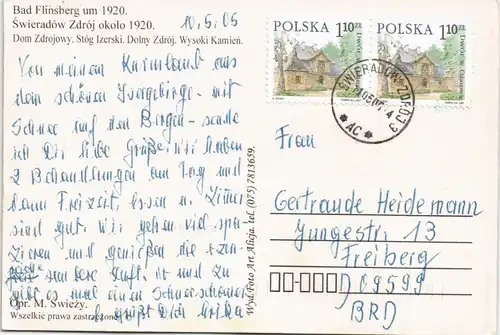 Bad Flinsberg um 1920.
Świeradów Zdrój około 1920.
Dom Zdrojowy. Stóg Izerski. Dolny Zdrój. Wysoki Kamień.
10.5.05
Von meinem Kurlaub aus
dem schönen Isergebirge - mit
Schnee auf den Bergen - sende
ich Dir liebe Grüße. Wir haben
2 Behandlungen am Tag und
dann Freizeit, Essen u. Zimmer
sind gut. Wir gehen viel spa-
zieren und genießen die
saubere Luft. und zu
gibt es mal einen
grüßt Dich
Opr. M. Świeży.
Wszelkie prawa zastrzeżone
Wyd. Foto Art. Alicja. tel. (075) 7813659.
POLSKA 1,10 ZŁ
POLSKA 1,10 ZŁ
ŚWIERADÓW-ZDRÓJ 3
* AC *
Frau
Gertraude Heidemann
Jungestr. 13
Freiberg
D 09599
BRD